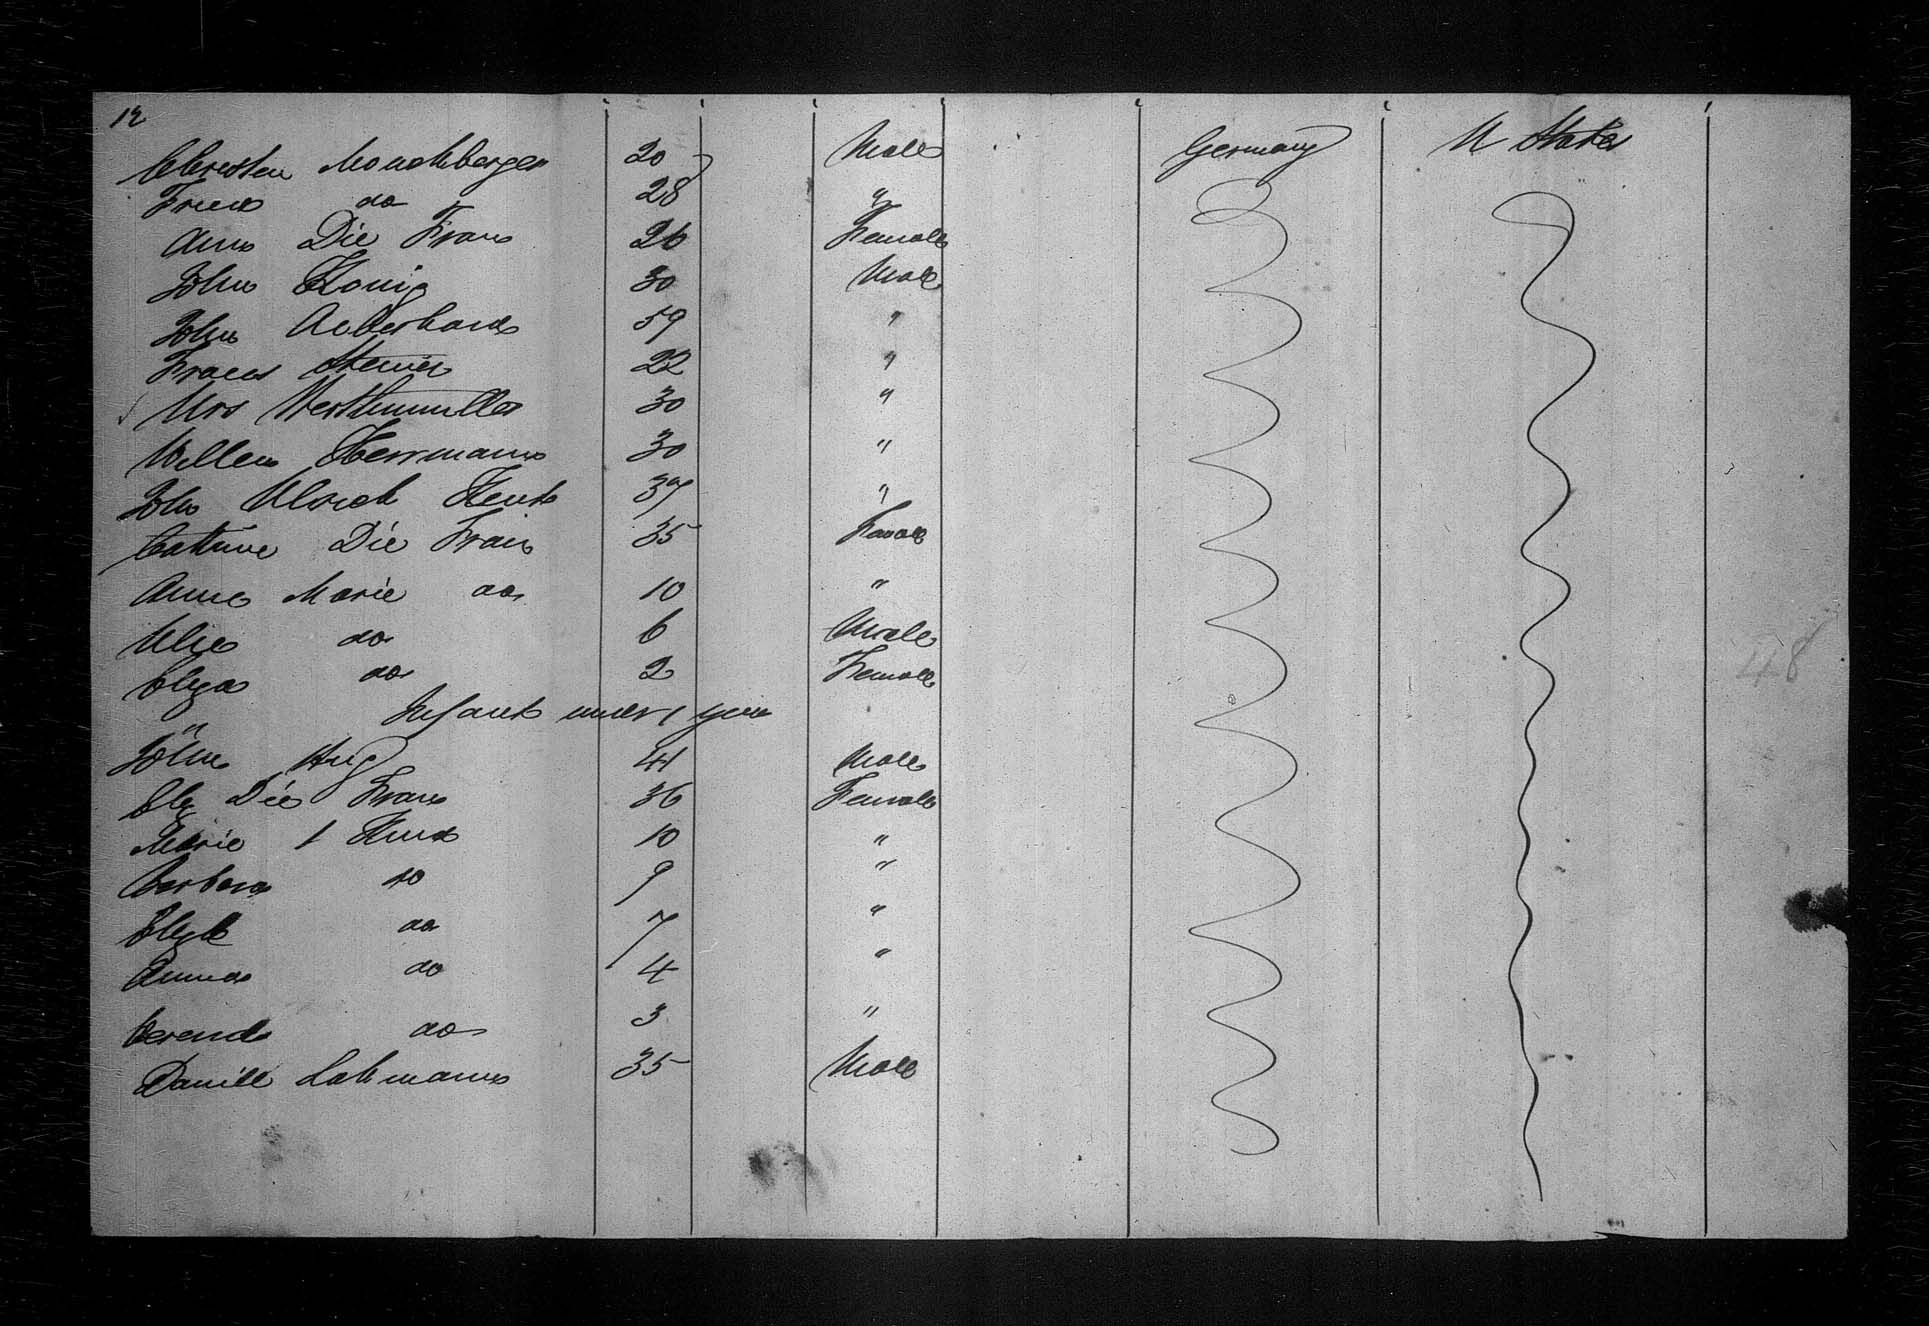 12
Christen Mouchberger 20 Male Germany U States
Fried do 28 "
Anna Die Frau 26 Female
John König 30 Male
John Aeberhard 59 "
Franz Steiner 22 "
Urs Werthmuller 30 "
Willem Herrmann 30 "
John Ulrich Kent 37 "
Cathrine Die Frau 35 Female
Anna Marie do 10 "
Ulic do 6 Male
Eliza do 2 Female
" Infant under 1 year
John Hug 41 Male
Eliz Die Frau 36 Female
Marie 1 Kind 10 "
Barbara do 9 "
do 7 "
Anna do 4 "
Verena do 3 "
Daniel Lahmann 35 Male
48